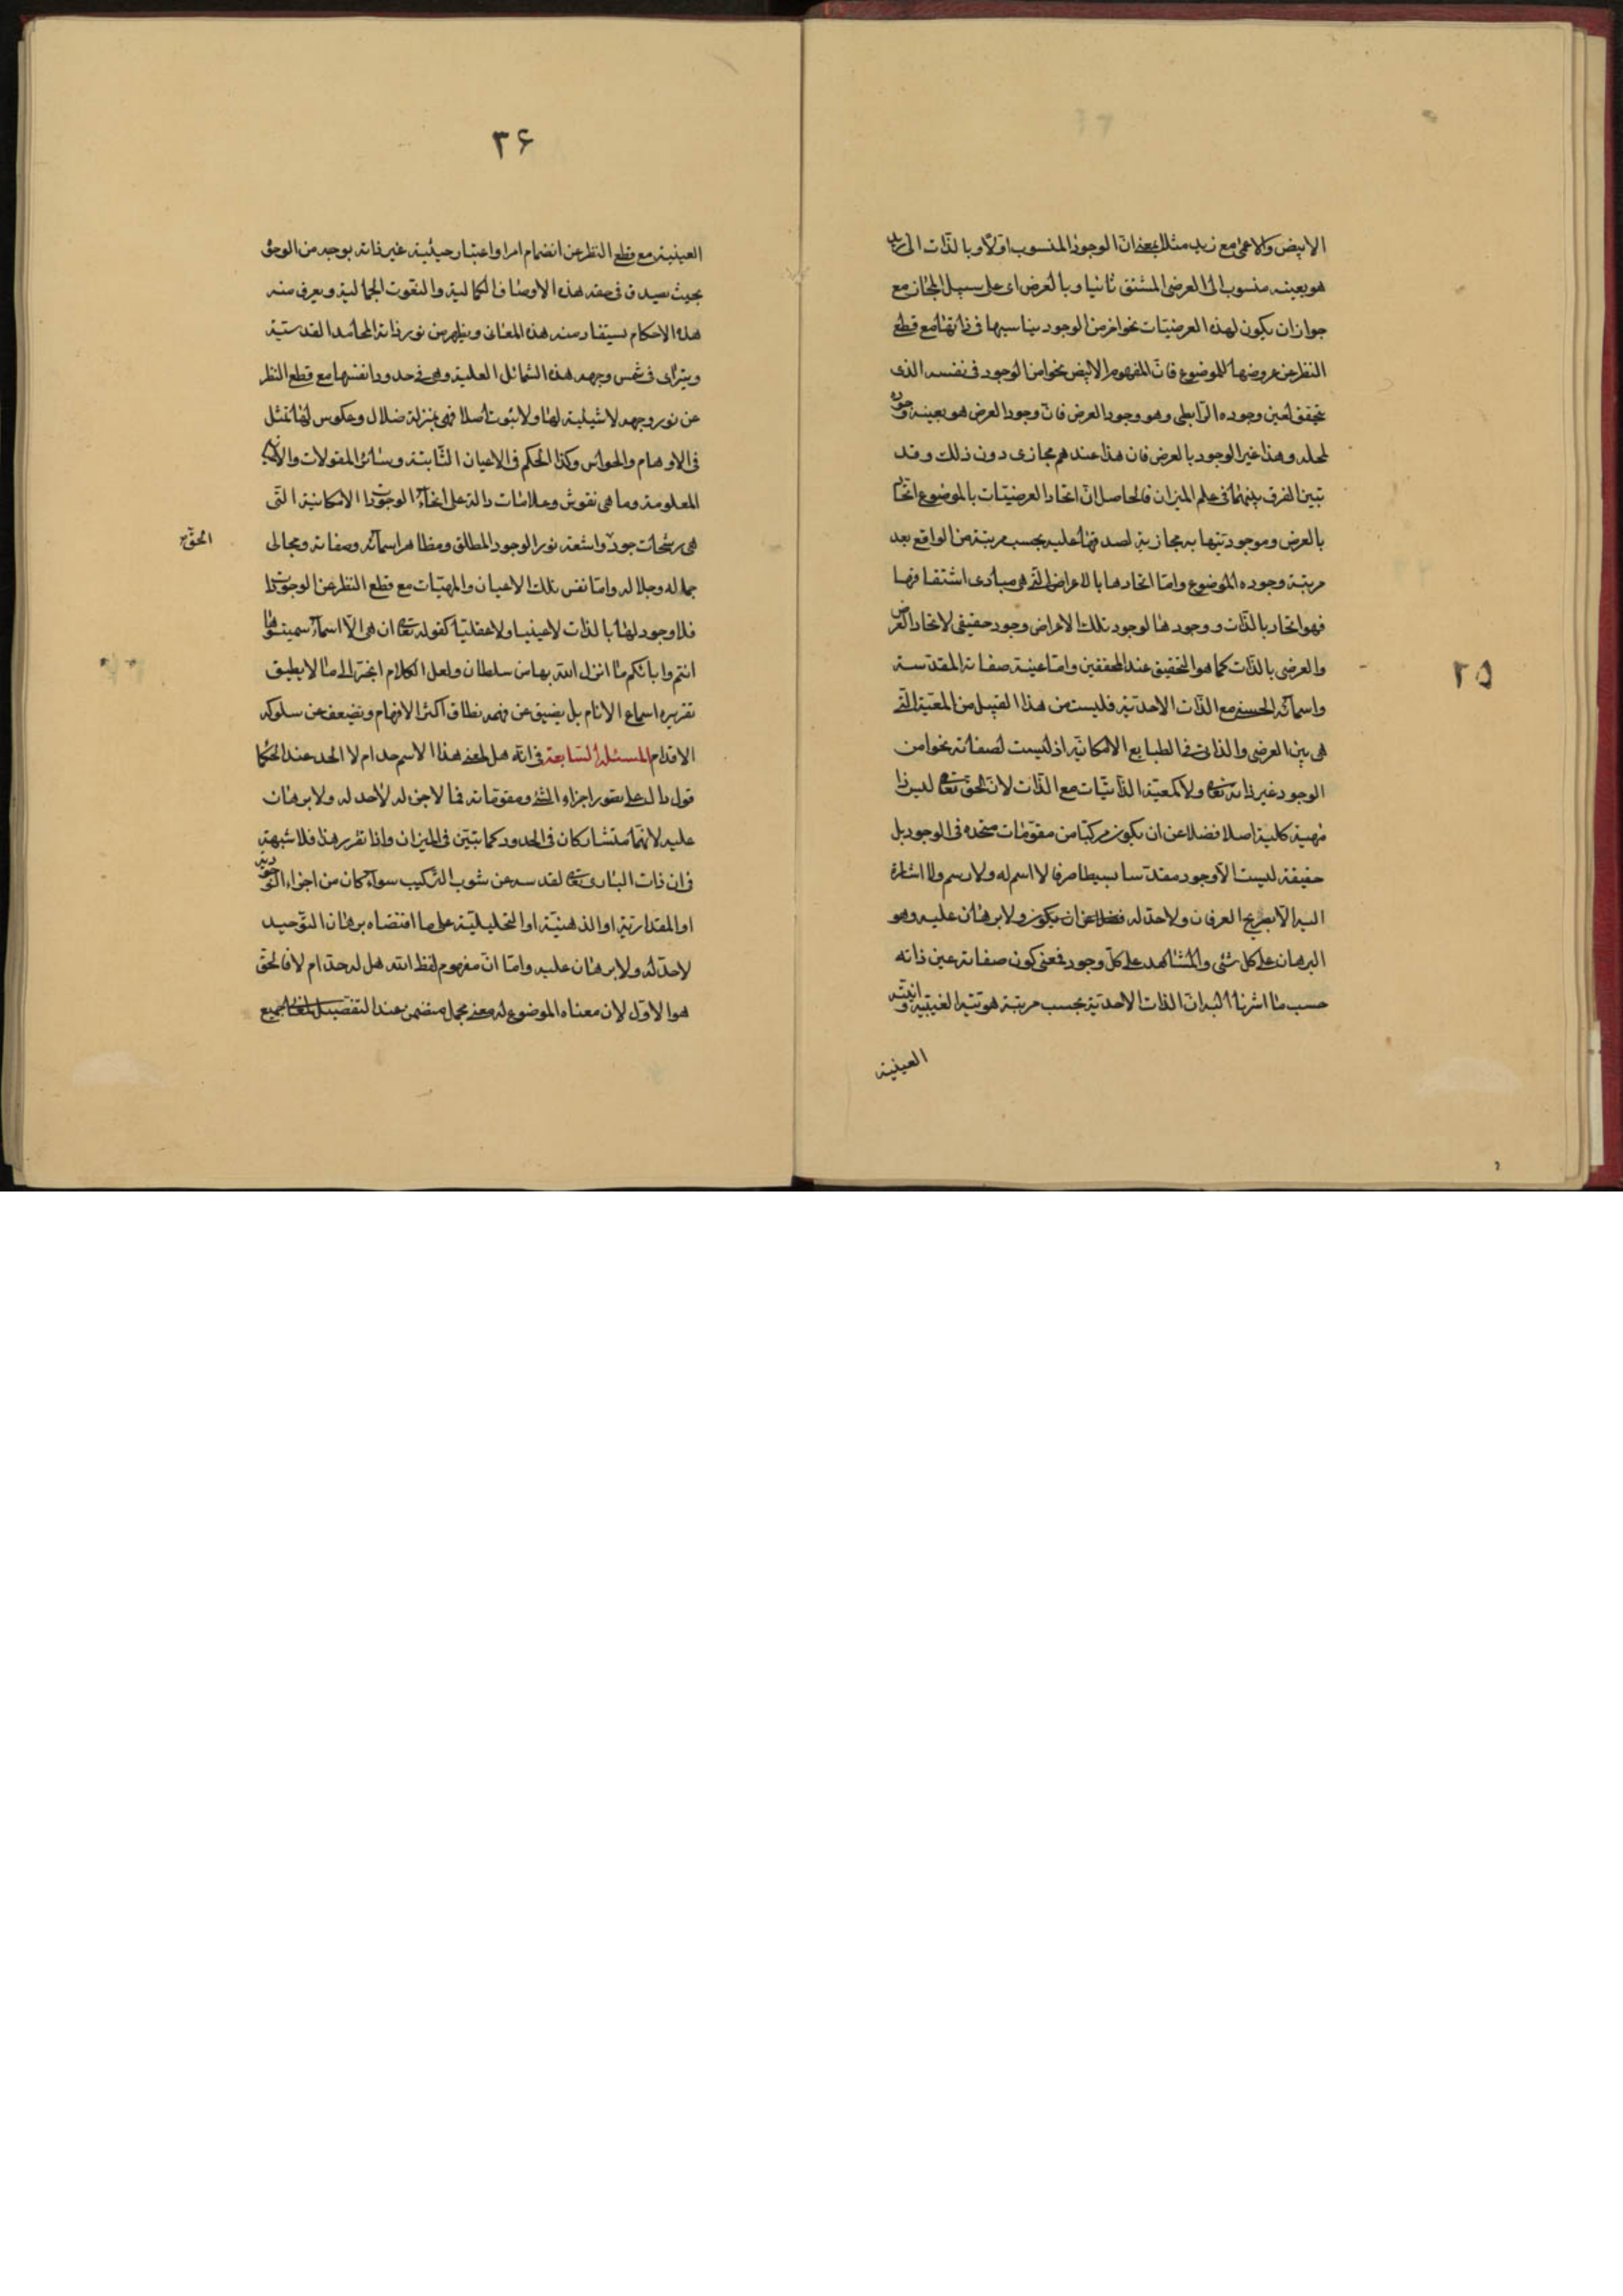 ٢٥
الابيض والاعمى مع زيد مثلا بمعنى ان الوجود المنسوب اولا وبالذات الى زيد
هو بعينه منسوب الى العرضى المشتق ثانيا وبالعرض اى على سبيل المجاز مع
جواز ان يكون لهذه العرضيات نحو اخر من الوجود يناسبها فى ذاتها مع قطع
النظر عن عروضها للموضوع فان المفهوم الابيض نحوا من الوجود فى نفسه الذى
تحقق لعين وجوده الرابطى وهو وجود العرض فان وجود العرض هو بعينه وجوده
لمحله وهذا غير الوجود بالعرض فان هذا عندهم مجازى دون ذلك وقد
تبين الفرق بينهما فى علم الميزان فالحاصل ان اتحاد العرضيات بالموضوع اتحاد
بالعرض وموجوديتها به مجازية لصدقها عليه بحسب مرتبة من الواقع بعد
مرتبة وجوده الموضوع واما اتحادها بالاعراض التى هى مبادى اشتقاقها
فهو اتحاد بالذات ووجودها لوجود تلك الاعراض وجود حقيقى لاتحاد العرض
والعرضى بالذات كما هو التحقيق عند المحققين واما عينية صفاته المقدسة
واسمائه الحسنى مع الذات الاحدية فليست من هذا القبيل من المعية التى
هى بين العرضى والذاتى فى الطبايع الامكانية اذ ليست لصفاته نحوا من
الوجود غير ذاته تعالى ولا كمعية الذاتيات مع الذات لان الحق تعالى ليس ذا
مهية كلية اصلا فضلا عن ان يكون مركبا من مقومات متحدة فى الوجود بل
حقيقته ليست الا وجود مقدسا بسيطا صرفا لا اسم له ولا رسم ولا اشارة
اليه الا بصريح العرفان ولا حد له فضلا عن ان يكون ولا برهان عليه وهو
البرهان على كل شئ والمشاهد على كل وجود فمعنى كون صفاته عين ذاته
حسب ما اشرنا اليه ان الذات الاحدية بحسب مرتبة هويته الغيبية وانيته
العينية
٣۶
العينية مع قطع النظر عن انضمام امر او اعتبار حيثية غير ذاته بوجه من الوجوه
بحيث يصدق فى حقه هذه الاوصاف الكمالية والنعوت الجمالية ويعرف منه
هذه الاحكام يستفاد منه هذه المعانى ويظهر من نور ذاته المحامد القدسية
ويترائى فى شمس وجهه هذه الشمائل العلية وهى فى حدود انفسها مع قطع النظر
عن نور وجهه لا شيئية لها ولا ثبوت اصلا فهى بمنزلة ضلال وعكوس لها تمثل
فى الاوهام والحواس وكذا الحكم فى الاعيان الثابتة وسائر المقولات والاشياء
المعلومة وما هى نقوش وعلامات دالة على انحاء الوجودات الامكانية التى
هى رشحات جود واشعة نور الوجود المطلق ومظاهر اسمائه وصفاته ومجالى
الحق
جماله وجلاله واما نفس تلك الاعيان والمهيات مع قطع النظر عن الوجودات
فلا وجود لها بالذات لا عينيا ولا عقليا كقوله تعالى ان هى الا اسماء سميتموها
انتم وابائكم ما انزل الله بها من سلطان ولعل الكلام انجر الى ما لا يطيق
تقريره اسماع الانام بل يضيق عن فهمه نطاق اكثر الافهام ويضعف عن سلوكه
الاقدام المسئلة السابعة فى انه هل لمعنى هذا الاسم حد ام لا الحد عند الحكماء
قول دال على تصور اجزاء الشئ ومقوماته فما لا جزء له لا حد له ولا برهان
عليه لانهما متشاركان فى الحدود كما تبين فى الميزان واذا تقرر هذا فلا شبهة
فى ان ذات البارى تعالى لقدسه عن شوب التركيب سواء كان من اجزاء الوجودية
او المقدارية او الذهنية او التحليلية على ما اقتضاه برهان التوحيد
لا حد له ولا برهان عليه واما ان مفهوم لفظ الله هل له حد ام لا فالحق
هو الاول لان معناه الموضوع له معنى مجمل متضمن عند التفصيل لجميع